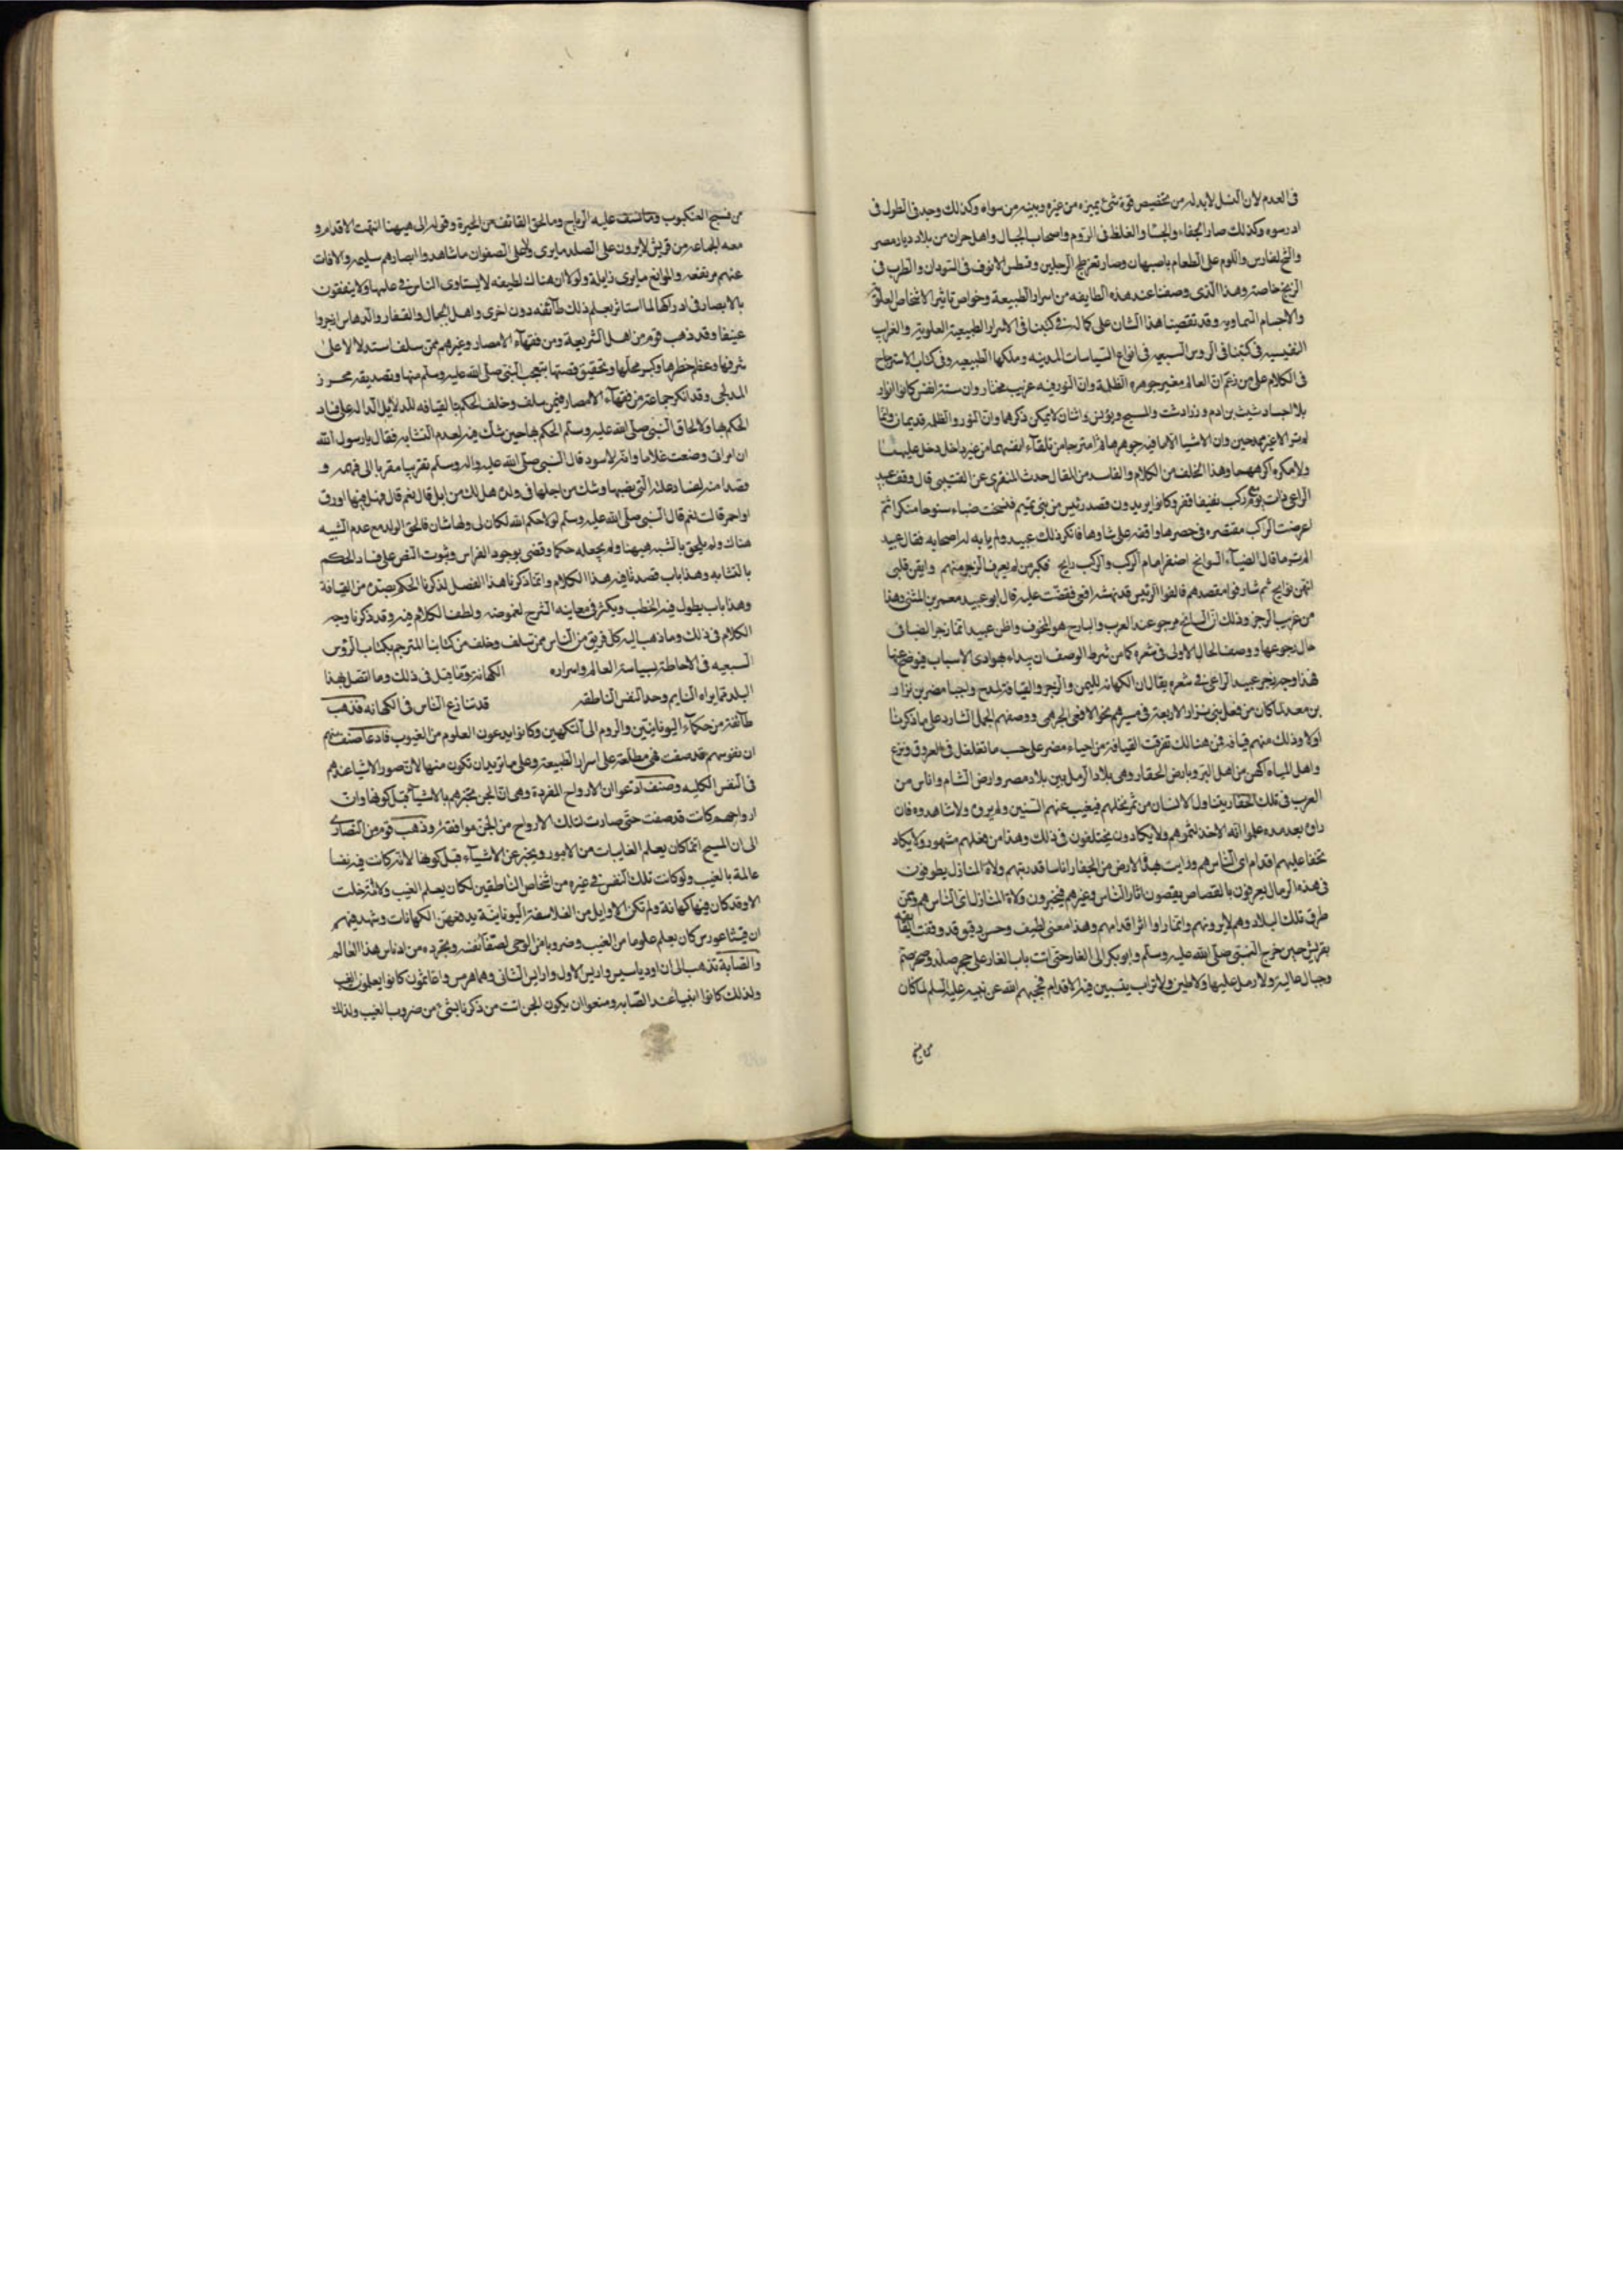 فى العدم لان النسل لابد له من تخصيص قوة شئ يميزه من غيره ويبينه من سواه وكذلك وجد فى الطول فى
وكذلك صار الجفاء والغلظ فى الروم واصحاب الجبال واهل حران من بلاد ديار مضر
والشح لفارس واللوم على الطعام باصبهان وصار تفرطح الرجلين وفطس الانوف فى السودان والطرب فى
الزنج خاصة وهذا الذى وصفنا عند هذه الطايفه من اسرار الطبيعة وخواص تاثير الاشخاص العلوية
والاجسام السماوية وقد تقصينا هذا الشان على كماله فى كتبنا فى الاسرار الطبيعية العلوية والغراب
النفيسه فى كتبنا فى الروس السبعيه فى انواع السياسات المدنيه وملكها الطبيعيه وفى كتاب الاسترجاح
فى الكلام على من زعم ان العالم مغير جوهره الظلمة وان النور فيه غريب مختار وان ستة انفس كانوا انوار
بلا اجساد شيث بن ادم و زرادشت والمسيح ويونس واثنان لا يمكن ذكرهما وان النور والظلمه قديمان وانما
لم يزالا غير ممزوجين وان الاشيا الا ما فيه جوهرهما امتزجا من تلقاء انفسهما من غير داخل دخل عليهما
ولا مكره اكرههما وهذا الخلف من الكلام والفاسد من المقال حدث المنقرى عن العتيبى قال وقف عبيد
الراعى ذات يوم مع ركب بفيفا قفر وكانوا يريدون قصد رئيس من بنى تميم فسنحت ضباء سنوحا منكرا ثم
اعرضت الركب مقصره فى حصرها واقفه على شاوها فانكر ذلك عبيد ولم يابه له اصحابه فقال عبيد
الم تر ما قال الضباء السوانح اصفر امام الركب والركب رايح فكبر من لم يعرف الزجر منهم وايقن قلبى
انهن نوايح ثم شارفوا مقصدهم فالفوا الرئيس قد نهشه افعى فقضت عليه قال ابو عبيد معمر بن المثنى وهذا
من غريب الزجر وذلك ان السانح مرجو عند العرب والبارح هو المخوف واظن عبيدا انما زجر الضبا فى
حال رجوعها ووصف الحال الاولى فى شعره كما من شرط الوصف ان يبداء بهوادى الاسباب فيوضح عنها
فهذا وجه زجر عبيد الراعى فى شعره يقال ان الكهانه لليمن والزجر والقيافة واحيا مضر بن نزار
بن معد لما كان من فعل بنى نزار الاربعة فى مسيرهم نحو الافعى الجرهمى ووصفهم الجمل الشارد على ما ذكرنا
اولا وذلك منهم قيافة فمن هنالك تفرقت القيافة من احياء مضر على حسب ما تغلغل فى العروق ونزع
واهل المياه اكهن من اهل البر وبارض الجفار وهى بلاد الرمل بين بلاد مصر وارض الشام واناس من
العرب فى تلك الجفار يتناول الانسان من ثمر نخلهم فيغيب عنهم السنين ولم يروه ولا شاهدوه فان
راوه بعد مده علموا انه الاخذ لثمرهم ولا يكادون يختلفون فى ذلك وهذا من فعلهم مشهور ولا يكاد
تخفا عليهم اقدام اى الناس هم ورايت بهذه الارض من الجفار اناسا قد رتبهم ولاة المنازل يطوفون
فى هذه الرمال يعرفون بالقصاص يقصون اثار الناس وغيرهم فيخبرون ولاة المنازل اى الناس هم ومن
طرق تلك البلاد وهم لا يرونهم وانما راوا اثر اقدامهم وهذا معنى لطيف وحس دقيق وقد وقفت القافة
بقريش حين خرج النبى صلى الله عليه وسلم وابو بكر الى الغار حتى اتت باب الغار على حجر صلد وصخر صم
وجبال عالية ولا رمل عليها ولا طين ولا تراب يتبين فيه الاقدام فحجبهم الله عن نبيه عليه السلم لما كان
من نسج
من نسج العنكبوت وما سفت عليه الرياح وما لحق القائف من الحيرة وقوله الى هيهنا انتهت الاقدام و
معه الجماعه من قريش لا يرون على الصلد ما يرى ولا على الصفوان ما شاهدوا وابصارهم سليمه والافات
عنهم مرتفعه والموانع ما يرى زايلة ولولا ان هناك لطيفه لا يستاوى الناس فى علمها ولا يتفقون
بالابصار فى ادراكها لما استاثر بعلم ذلك طآئفه دون اخرى واهل الجبال والقفار والدهاس
عنيفا وقد ذهب قوم من اهل الشريعة ومن فقهآء الامصار وغيرهم ممن سلف استدلالا على
شرفها وعظم خطرها وكبر محلها وتحقيق قصتها بتعجب النبى صلى الله عليه وسلم منها وتصديقه محرز
المدلجى وقد انكر جماعة من فقهآء الامصار فيمن سلف وخلف الحكم بالقيافه للدلايل الداله على فساد
الحكم بها ولالحاق النبى صلى الله عليه وسلم الحكم بها حين شك فيه لعدم التشابه فقال يا رسول الله
ان امراتى وضعت غلاما وانه لاسود قال النبى صلى الله عليه واله وسلم تقريبا مقربا الى فهمه و
قصدا منه لفساد علته التى نصبها وشك من اجلها فى ولده هل لك من ابل قال نعم قال فهل فيها اورق
او احمر قالت نعم قال النبى صلى الله عليه وسلم لولا حكم الله لكان لى ولها شان فالحق الولد مع عدم الشبه
هناك ولم يلحق بالشبه هيهنا ولم يجعله حكما وقضى بوجود الفراش وثبوت النص على فساد الحكم
بالتشابه وهذا باب قصدنا فيه هذا الكلام وانما ذكرنا هذا الفصل لذكرنا الحكم بصدق من القيافة
وهذا باب يطول فيه الخطب ويكثر فى معاينه الشرح لغموضه ولطف الكلام فيه وقد ذكرنا وجه
الكلام فى ذلك وما ذهب اليه كل فريق من الناس ممن سلف وخلف من كتابنا المترجم بكتاب الرؤس
السبعيه فى الاحاطة بسياسة العالم واسراره الكهانة وما قيل فى ذلك وما اتصل بهذا
البلد مما يراه النايم وحد النفس الناطقه قد تنازع الناس فى الكهانه فذهب
طآئفة من حكمآء اليونانيين والروم الى التكهين وكانوا يدعون العلوم من الغيوب فادعا صنف منهم
ان نفوسهم قد صفت فهى مطلعة على اسرار الطبيعة وعلى ما تريد ان تكون منها لان صور الاشيا عندهم
فى النفس الكليه وصنف ادعوا ان الارواح المفردة وهى ان الجن تخبرهم بالاشيآء قبل كونها وان
ارواحهم كانت قد صفت حتى صارت لتلك الارواح من الجن موافقة وذهب قوم من النصارى
الى ان المسيح انما كان يعلم الغايبات من الامور ويخبر عن الاشيآء قبل كونها لانه كانت فيه نفسا
عالمة بالغيب ولو كانت تلك النفس فى غيره من اشخاص الناطقين لكان يعلم الغيب ولا امة خلت
الا وقد كان فيها كهانة ولم تكن الاوايل من الفلاسفة اليونانية يدفعون الكهانات وشهد فيهم
ان فيثاغورس كان يعلم علوما من الغيب وضروبا من الوحى لصفآء نفسه وتجرده من ادناس هذا العالم
والصابة تذهب الى ان اوديايسيس واريس الاول واريس الثانى وهما هرمس واغاثمون كانوا يعلمون الغيب
ولذلك كانوا انبيا عند الصابه ومنعوا ان يكون الجن اتت من ذكرنا بشئ من ضروب الغيب ولذلك